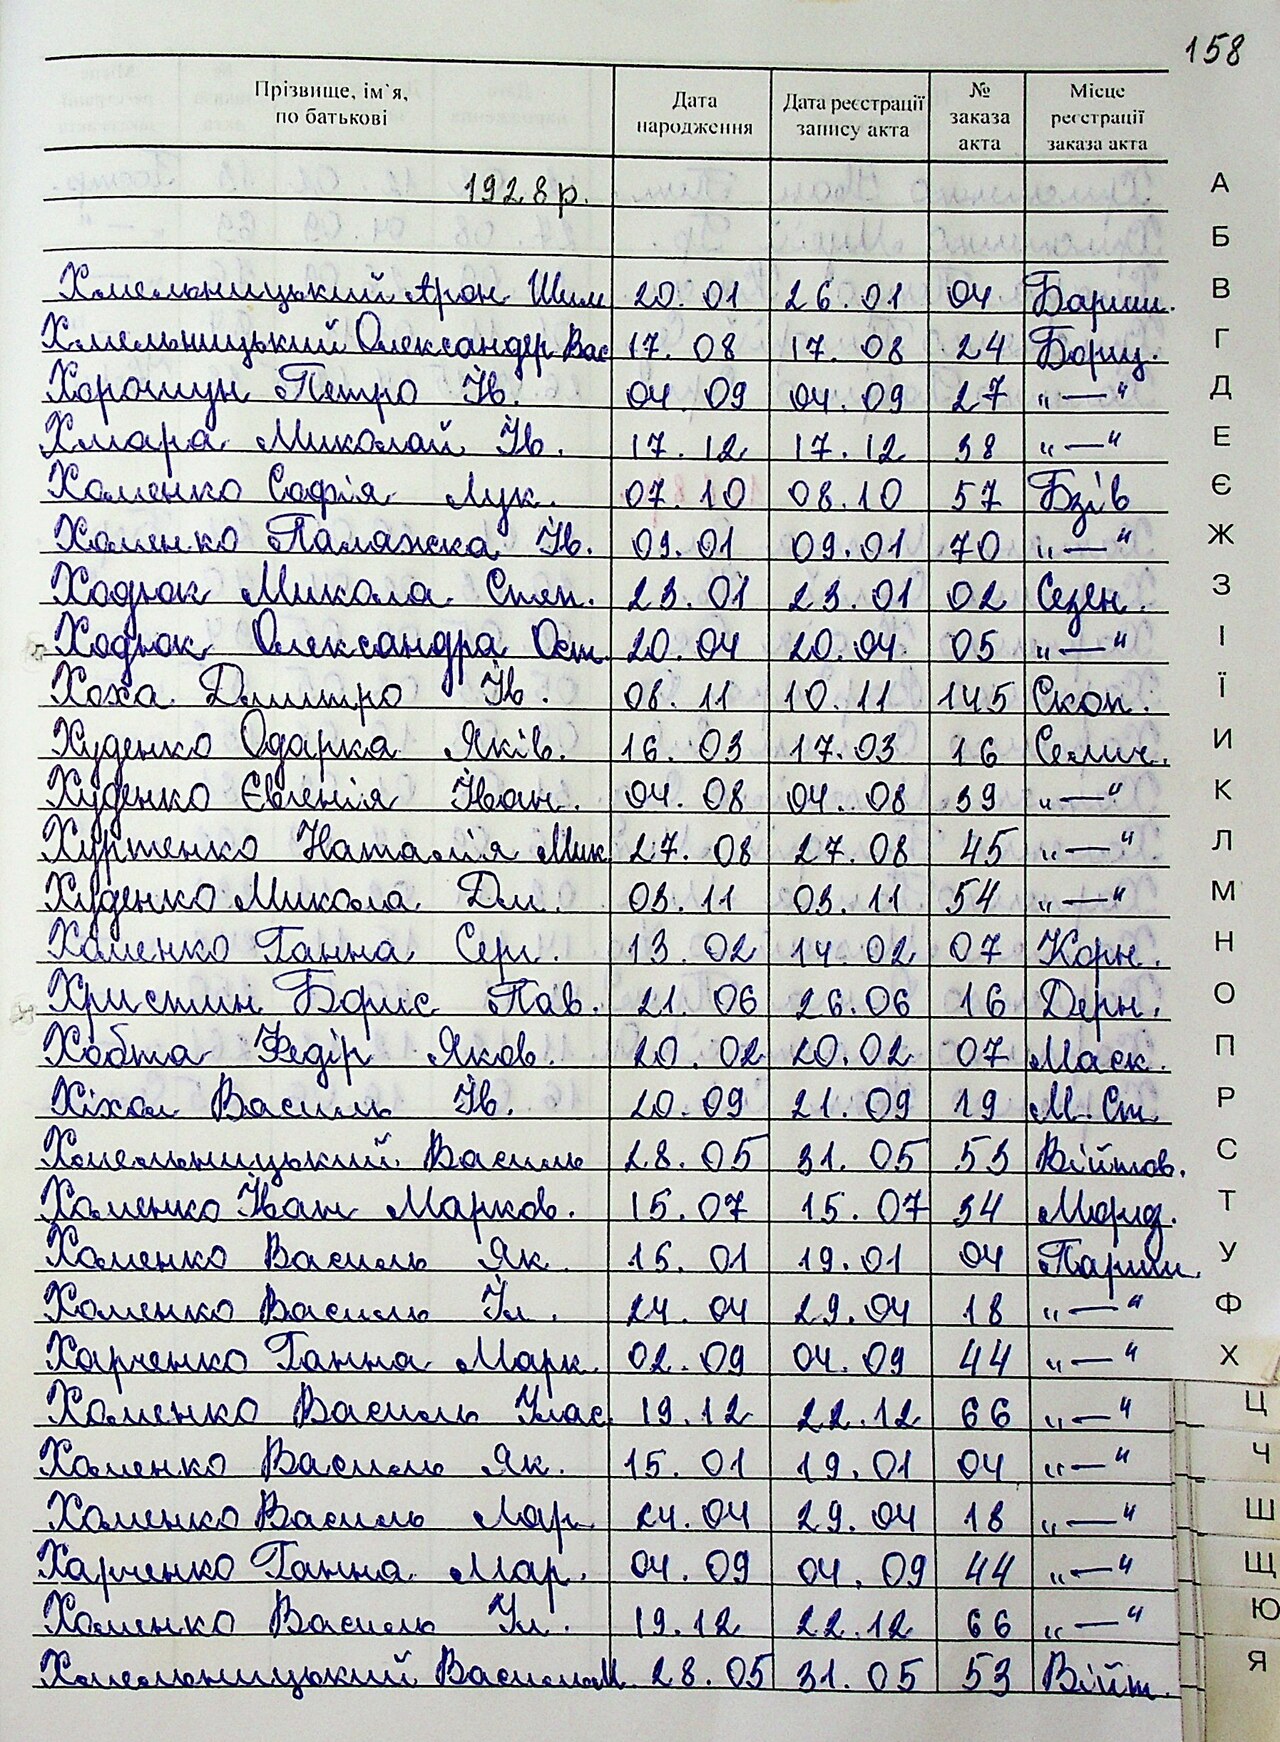 158
Прізвище, ім`я, по батькові Дата народження Дата реєстрації запису акта № заказа акта Місце реєстрації заказа акта
1928р.
Хмельницький Арон Шим 20.01 26.01 04 Бориш.
Хмельницький Олександер Вас 17.08 17.08 24 Борищ.
Хорошун Петро Ів. 04.09 04.09 27 „—“
Хмара Миколай Ів. 17.12 17.12 38 „—“
Хоменко Софія Лук. 07.10 08.10 57 Бзів
Хоменко Палажка Ів. 09.01 09.01 70 „—“
Ходнок Микола Степ. 23.01 23.01 02 Сезен.
Ходнок Олександра Ост. 20.04 20.04 05 „—“
Хоха Дмитро Ів. 08.11 10.11 145 Скоп.
Худенко Одарка Яків. 16.03 17.03 16 Селич.
Худенко Євгенія Іван. 04.08 04.08 39 „—“
Хуртенко Наталія Мик 27.08 27.08 45 „—“
Худенко Микола Дм. 03.11 03.11 54 „—“
Хоменко Ганна Серг. 13.02 14.02 07 Корн.
Христин Борис Пав. 21.06 26.06 16 Дерн.
Хобта Федір Яков. 20.02 20.02 07 Маск.
Хіхол Василь Ів. 20.09 21.09 19 М.Ст.
Хмельницький Василь 28.05 31.05 53 Війтов.
Хоменко Іван Марков. 15.07 15.07 34
Хоменко Василь Як. 15.01 19.01 04 Париш.
Хоменко Василь Ул. 24.04 29.04 18 „—“
Харченко Ганна Марк. 02.09 04.09 44 „—“
Хоменко Василь Улас 19.12 22.12 66 „—“
Хоменко Василь Як. 15.01 19.01 04 „—“
Хоменко Василь Мар 24.04 29.04 18 „—“
Харченко Ганна Мар. 04.09 04.09 44 „—“
Хоменко Василь Ул. 19.12 22.12 66 „—“
Хмельницький Василь М. 28.05 31.05 53 Війт.
А
Б
В
Г
Д
Е
Є
Ж
З
І
Ї
И
К
Л
М
Н
О
П
Р
С
Т
У
Ф
Х
Ц
Ч
Ш
Щ
Ю
Я